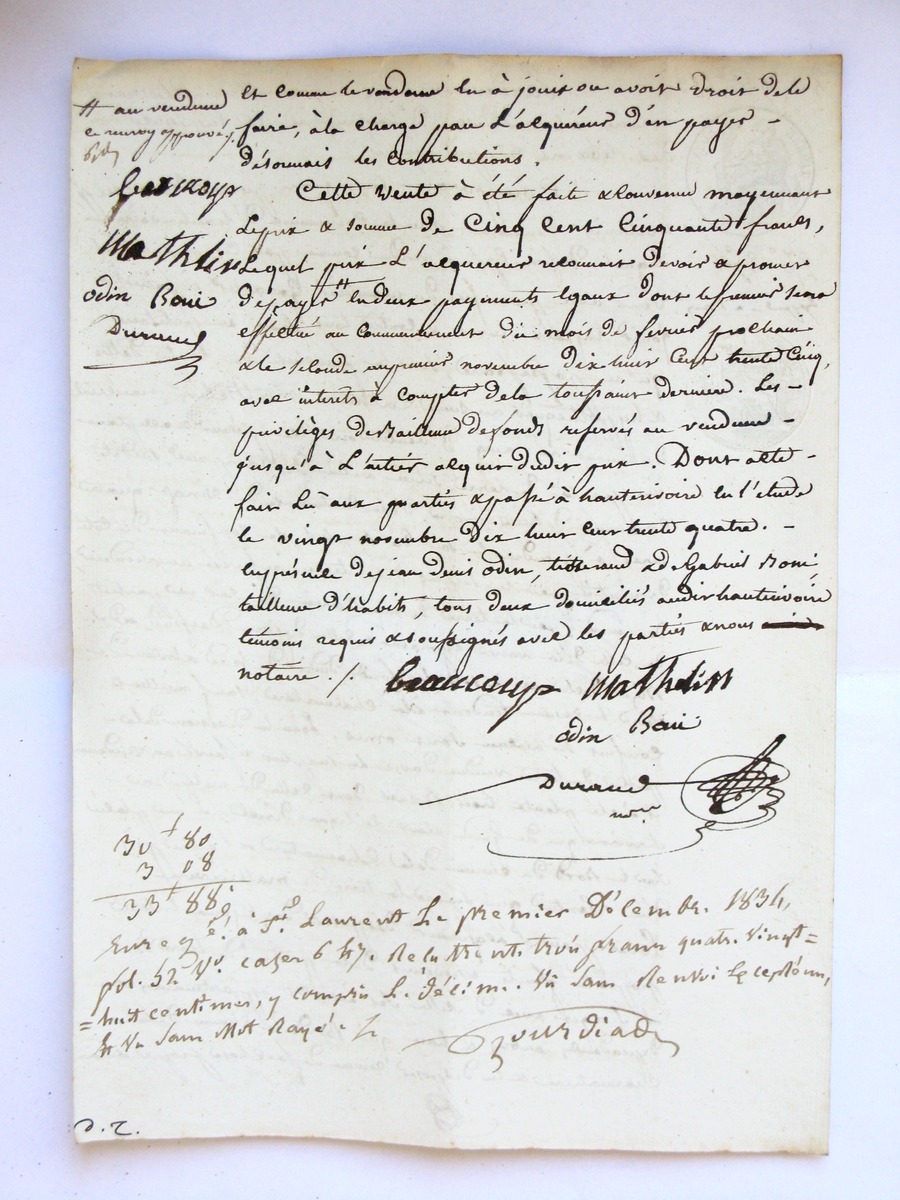 # au vendeur
ce renvoy approuvé /.
beaucoup
Mathelin
odin Boni
Durand
et comme le vendeur en à jouit ou avoit droit de le
faire, à la charge par L'acquéreur d'en payer –
désormais les Contributions.
Cette vente à été faite & Convenue moyennant
Le prix & somme de Cinq Cent Cinquante francs,
Lequel prix L'acquereur reconnait devoir & promet
de payer # en deux payements egaux dont le premier sera
effectué au Commencement du mois de fevrier prochain
& le second au premier novembre dix huit Cent trente Cinq,
avec intérêts à Compter de la toussaint dernière. Les –
privilèges de Bailleur de fonds reservés au vendeur –
jusqu'à L'entier acquit dudit prix. Dont acte –
fait Lu aux parties & passé à hauterivoire en l'étude
le vingt novembre dix huit Cent trente quatre. –
en présence de jean denis odin, tisserand & de Gabriel Boni
tailleur d'habits, tous deux domiciliés audit hauterivoire
témoins requis & soussignés avec les parties & nous
notaire ./.
beaucoup Mathelin
odin Boni
Durand
nore
30f 80
3 08
33f 88c
Enregé. à St. Laurent Le premier Décembre 1834,
fol. 52 Vo. cases 6 & 7. Reçu trente trois francs quatre Vingt=
=huit centimes, y compris Le décime. Vu Sans Renvoi
& Vu Sans Mot Rayé.
Gourdiad